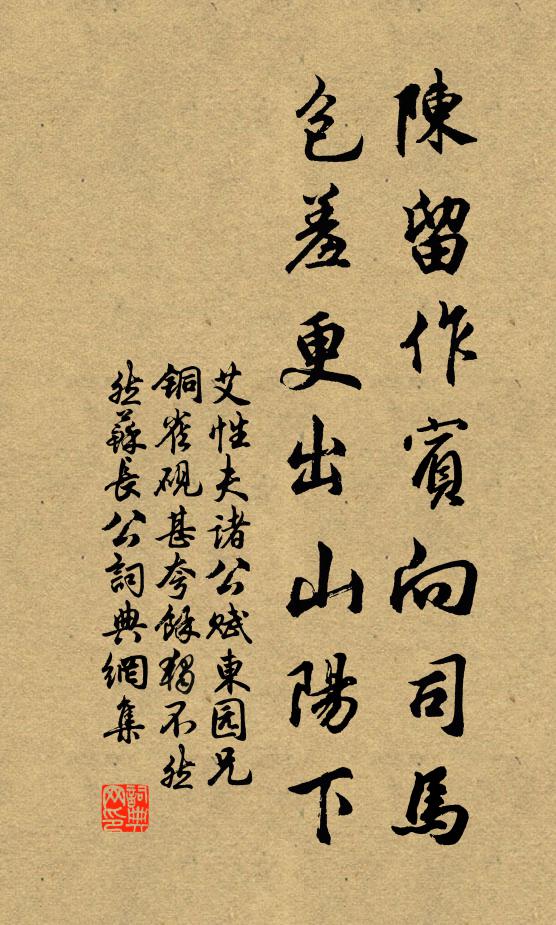 陳留作賓向司馬
包羞更出山陽下
艾性夫諸公賦東园兄
銅雀硯甚夸餘獨不然
然蘇長公詞典網集
詞典
网印